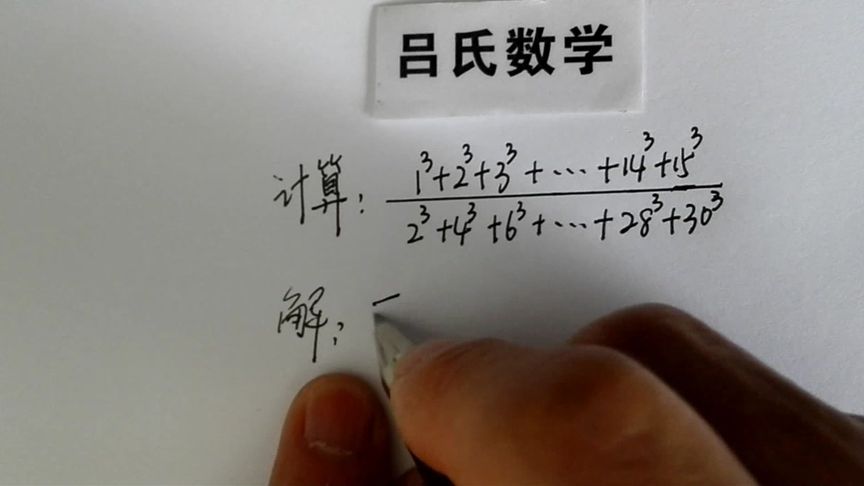 吕氏数学
计算: \frac{1^3+2^3+3^3+⋯+14^3+15^3}{2^3+4^3+6^3+⋯+28^3+30^3}
解: